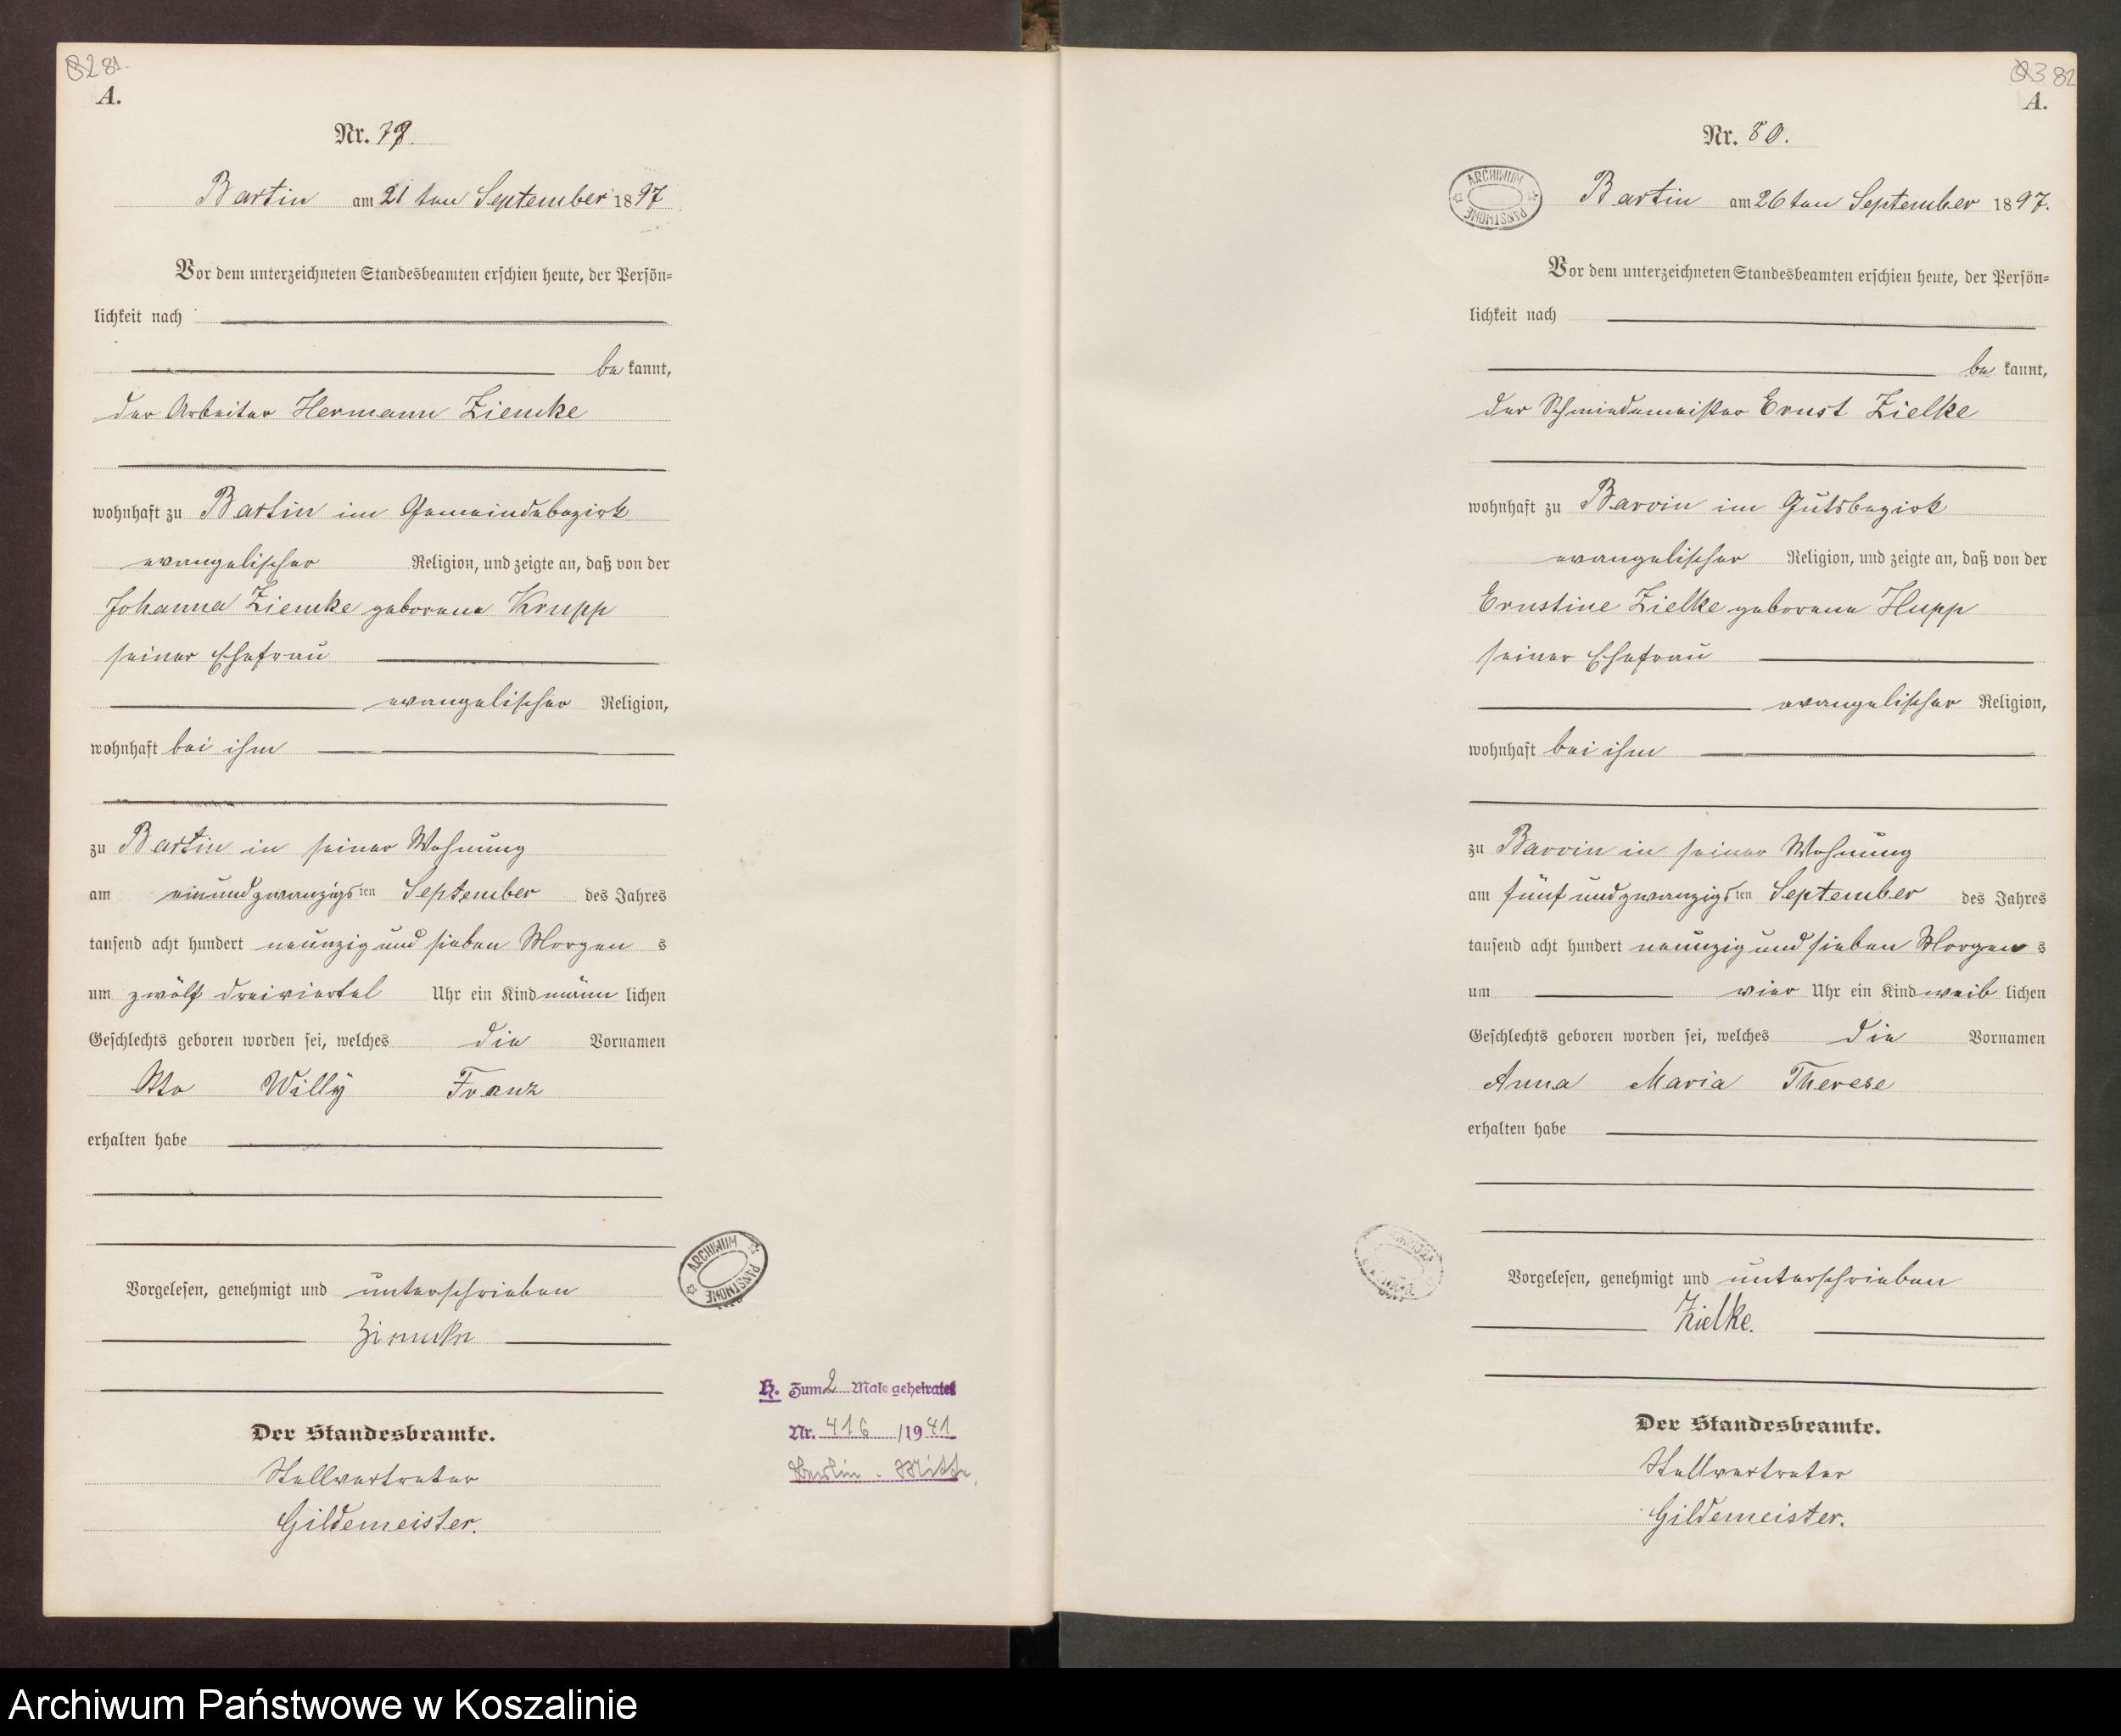 82 81.
A.
Nr. 79.
Bartin am 21 ten September 1897
Vor dem unterzeichneten Standesbeamten erschien heute, der Persön=
lichkeit nach
be kannt,
der Arbeiter Hermann Ziemke
wohnhaft zu Bartin im Gemeindebezirk
evangelischer Religion, und zeigte an, daß von der
Johanna Ziemke geborene Krupp
seiner Ehefrau
evangelischer Religion,
wohnhaft bei ihm
zu Bartin in seiner Wohnung
am einundzwanzigsten September des Jahres
tausend acht hundert neunzig und sieben Morgen s
um zwölf dreiviertel Uhr ein Kind männ lichen
Geschlechts geboren worden sei, welches die Vornamen
Otto Willy Franz
erhalten habe
Vorgelesen, genehmigt und unterschrieben
Ziemke
Der Standesbeamte.
Stellvertreter
Gildemeister.
ARCHIWUM PAŃSTWOWE
H. Zum 2 Male geheiratet
Nr. 416 /1941
Berlin - Mitte,
83 82
A.
Nr. 80.
ARCHIWUM PAŃSTWOWE
Bartin am 26 ten September 1897.
Vor dem unterzeichneten Standesbeamten erschien heute, der Persön=
lichkeit nach
be kannt,
der Schmiedemeister Ernst Zielke
wohnhaft zu Barvin im Gutsbezirk
evangelischer Religion, und zeigte an, daß von der
Ernstine Zielke geborene Hupp
seiner Ehefrau
evangelischer Religion,
wohnhaft bei ihm
zu Barvin in seiner Wohnung
am fünfundzwanzigsten September des Jahres
tausend acht hundert neunzig und sieben Morgen s
um vier Uhr ein Kind weib lichen
Geschlechts geboren worden sei, welches die Vornamen
Anna Maria Therese
erhalten habe
Vorgelesen, genehmigt und unterschrieben
Zielke.
Der Standesbeamte.
Stellvertreter
Gildemeister.
Archiwum Państwowe w Koszalinie